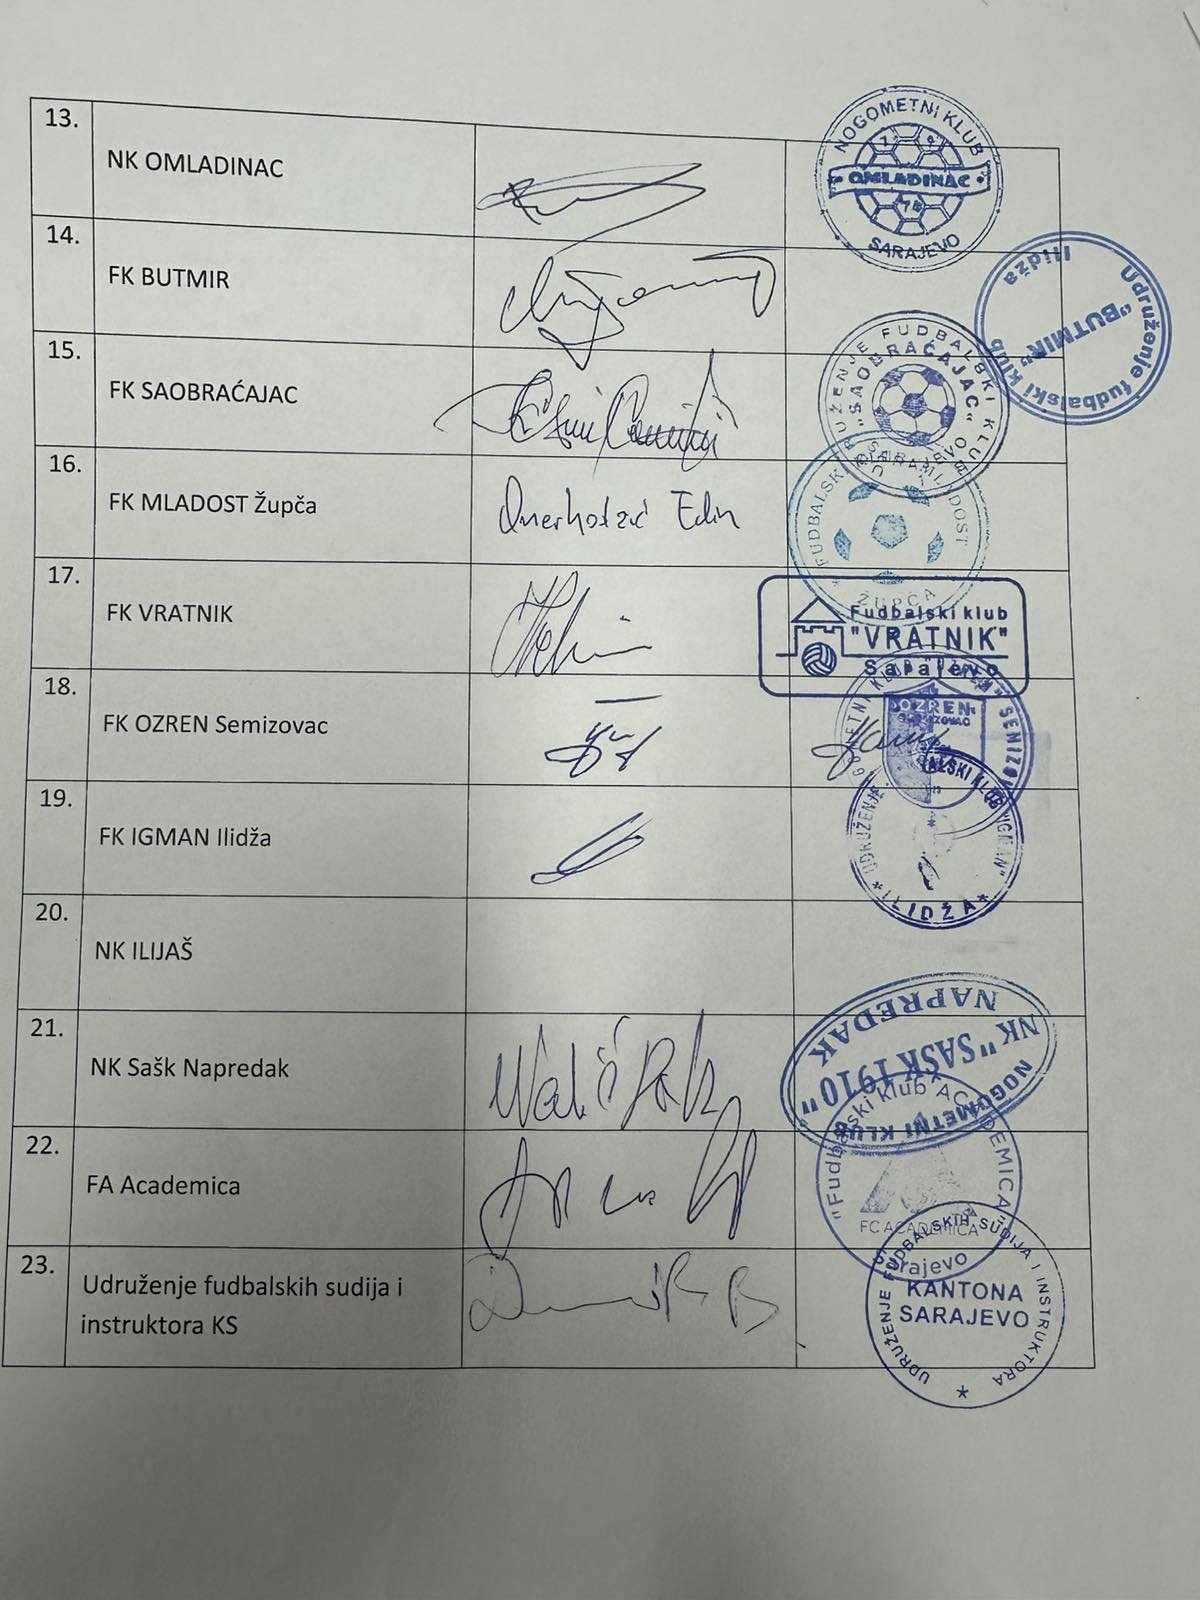 13.
NK OMLADINAC
NOGOMETNI KLUB
OMLADINAC
SARAJEVO
14.
FK BUTMIR
Udruženje fudbalski klub
"BUTMIR"
Ilidža
15.
FK SAOBRAĆAJAC
FUDBALSKI KLUB
"SAOBRAĆAJAC"
16.
FK MLADOST Župča
Omerhodzić Edin
FUDBALSKI
ŽUPČA
17.
FK VRATNIK
Fudbalski klub
"VRATNIK"
Sarajevo
18.
FK OZREN Semizovac
OZREN
19.
FK IGMAN Ilidža
UDRUŽENJE
ILIDŽA
20.
NK ILIJAŠ
21.
NK Sašk Napredak
NOGOMETNI KLUB
NK "SAŠK 1910"
NAPREDAK
22.
FA Academica
"Fudbalski klub ACADEMICA"
FC ACADEMICA
Sarajevo
23.
Udruženje fudbalskih sudija i
instruktora KS
UDRUŽENJE FUDBALSKIH SUDIJA I INSTRUKTORA
KANTONA
SARAJEVO